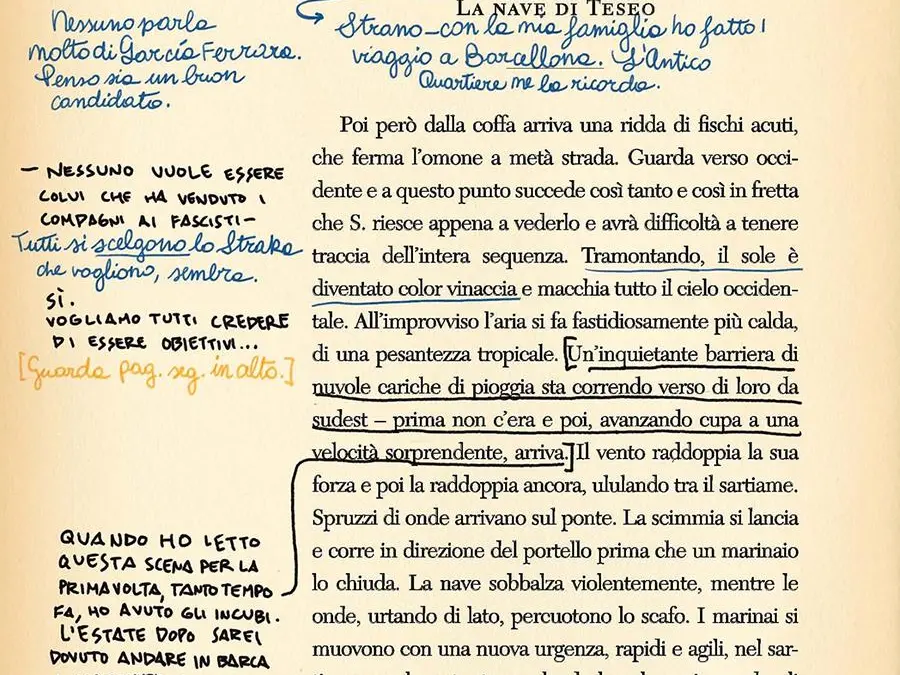 LA NAVE DI TESEO
Strano – con la mia famiglia ho fatto 1
viaggio a Barcellona. L'Antico
Quartiere me la ricorda.
Nessuno parla
molto di García Ferrara.
Penso sia un buon
candidato.
– NESSUNO VUOLE ESSERE
COLUI CHE HA VENDUTO I
COMPAGNI AI FASCISTI –
Tutti si scelgono lo Straka
che vogliono, sembra.
SÌ.
VOGLIAMO TUTTI CREDERE
DI ESSERE OBIETTIVI...
[Guarda pag. seg. in alto.]
QUANDO HO LETTO
QUESTA SCENA PER LA
PRIMA VOLTA, TANTO TEMPO
FA, HO AVUTO GLI INCUBI.
L'ESTATE DOPO SAREI
DOVUTO ANDARE IN BARCA
Poi però dalla coffa arriva una ridda di fischi acuti,
che ferma l'omone a metà strada. Guarda verso occi-
dente e a questo punto succede così tanto e così in fretta
che S. riesce appena a vederlo e avrà difficoltà a tenere
traccia dell'intera sequenza. Tramontando, il sole è
diventato color vinaccia e macchia tutto il cielo occiden-
tale. All'improvviso l'aria si fa fastidiosamente più calda,
di una pesantezza tropicale. [Un'inquietante barriera di
nuvole cariche di pioggia sta correndo verso di loro da
sudest – prima non c'era e poi, avanzando cupa a una
velocità sorprendente, arriva.] Il vento raddoppia la sua
forza e poi la raddoppia ancora, ululando tra il sartiame.
Spruzzi di onde arrivano sul ponte. La scimmia si lancia
e corre in direzione del portello prima che un marinaio
lo chiuda. La nave sobbalza violentemente, mentre le
onde, urtando di lato, percuotono lo scafo. I marinai si
muovono con una nuova urgenza, rapidi e agili, nel sar-